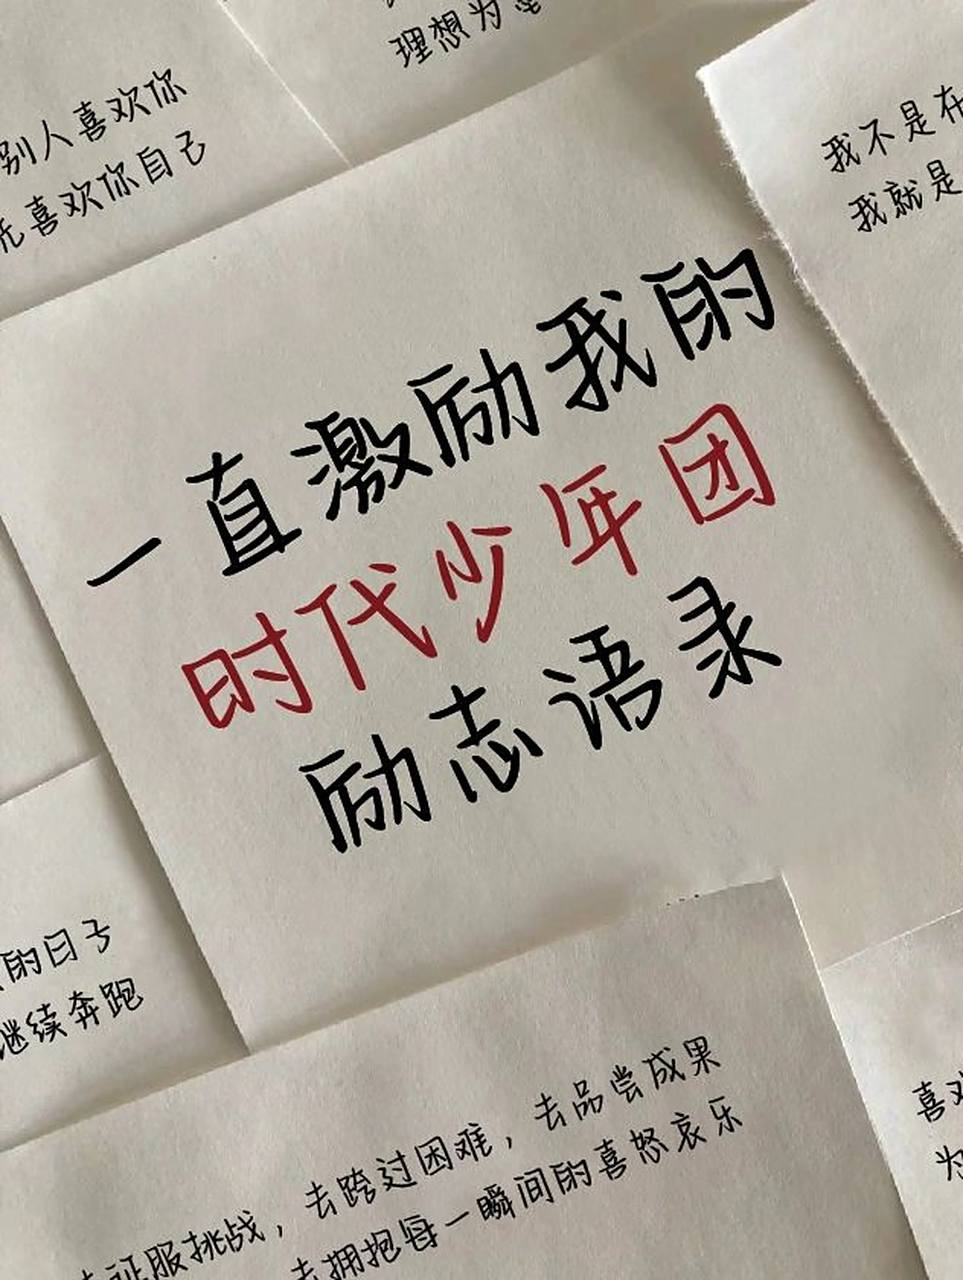 理想为
别人喜欢你
喜欢你自己
我不是在
我就是
一直激励我的
时代少年团
励志语录
的日子
继续奔跑
去征服挑战，去跨过困难，去品尝成果
去拥抱每一瞬间的喜怒哀乐
喜欢
为